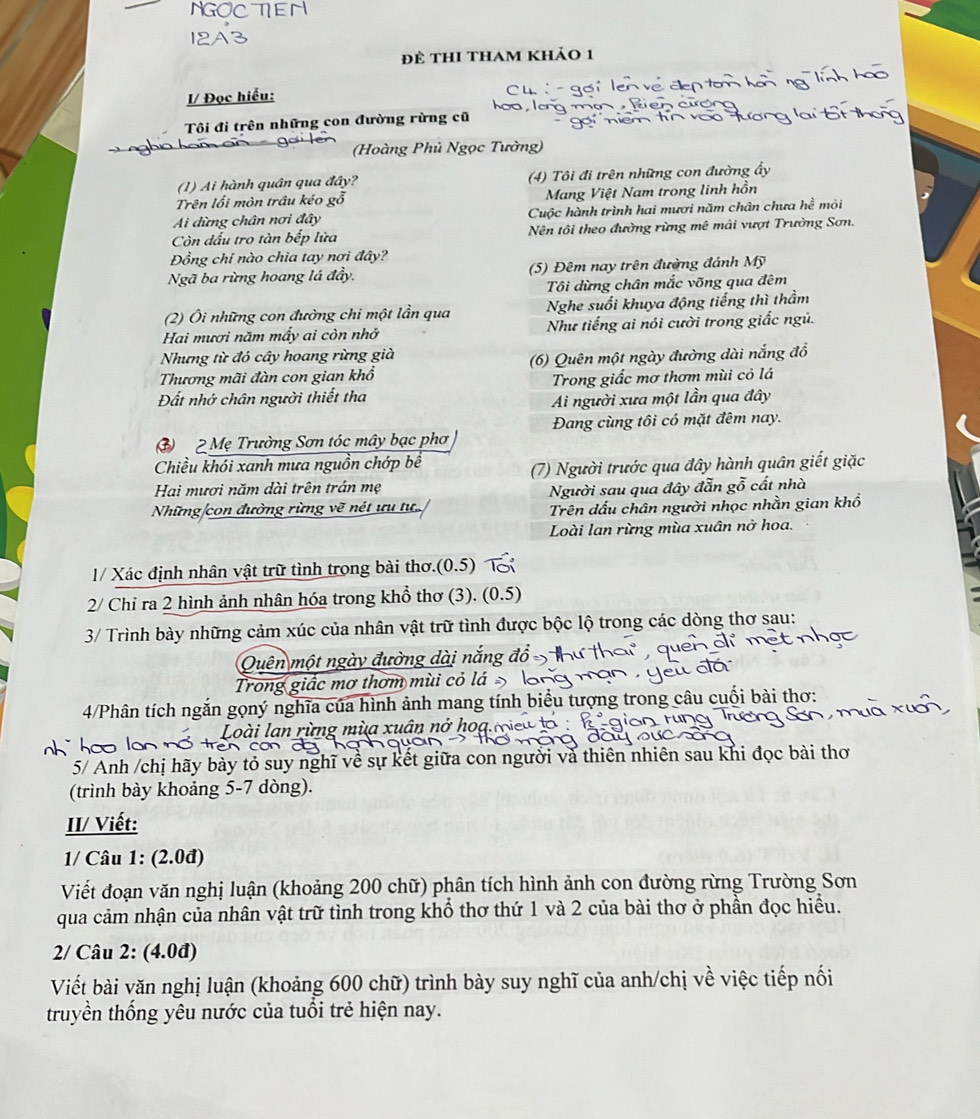 NGOC TIEN
12A3
ĐỀ THI THAM KHẢO 1
I/ Đọc hiểu:
C4: - gợi lên vẻ đẹp tâm hồn ng lính hào
hoa, lãng mạn, kiên cường
- gợi niềm tin vào tương lai tốt
Tôi đi trên những con đường rừng cũ
→ nghĩa hàm ẩn - gợi lên
(Hoàng Phủ Ngọc Tường)
(1) Ai hành quân qua đây?
Trên lối mòn trâu kéo gỗ
Ai dừng chân nơi đây
Còn dấu tro tàn bếp lửa
Đồng chí nào chia tay nơi đây?
Ngã ba rừng hoang lá đầy.
(2) Ôi những con đường chỉ một lần qua
Hai mươi năm mấy ai còn nhớ
Nhưng từ đó cây hoang rừng già
Thương mãi đàn con gian khổ
Đất nhớ chân người thiết tha
(3) 2 Mẹ Trường Sơn tóc mây bạc phơ
Chiều khói xanh mưa nguồn chớp bể
Hai mươi năm dài trên trán mẹ
Những con đường rừng vẽ nét ưu tư...
(4) Tôi đi trên những con đường ấy
Mang Việt Nam trong linh hồn
Cuộc hành trình hai mươi năm chân chưa hề mỏi
Nên tôi theo đường rừng mê mải vượt Trường Sơn.
(5) Đêm nay trên đường đánh Mỹ
Tôi dừng chân mắc võng qua đêm
Nghe suối khuya động tiếng thì thầm
Như tiếng ai nói cười trong giấc ngủ.
(6) Quên một ngày đường dài nắng đổ
Trong giấc mơ thơm mùi cỏ lá
Ai người xưa một lần qua đây
Đang cùng tôi có mặt đêm nay.
(7) Người trước qua đây hành quân giết giặc
Người sau qua đây đẵn gỗ cất nhà
Trên dấu chân người nhọc nhằn gian khổ
Loài lan rừng mùa xuân nở hoa.
1/ Xác định nhân vật trữ tình trong bài thơ.(0.5) Tôi
2/ Chỉ ra 2 hình ảnh nhân hóa trong khổ thơ (3). (0.5)
3/ Trình bày những cảm xúc của nhân vật trữ tình được bộc lộ trong các dòng thơ sau:
Quên một ngày đường dài nắng đổ → thư thái, quên đi mệt nhọc
Trong giấc mơ thơm mùi cỏ lá → lãng mạn, yêu đời
4/Phân tích ngắn gọný nghĩa của hình ảnh mang tính biểu tượng trong câu cuối bài thơ:
Loài lan rừng mùa xuân nở hoa. miêu tả : k gian rừng Trường Sơn, mùa xuân,
hoa lan nở trên con đg hành quân → thơ mộng đầy sức sống
5/ Anh /chị hãy bày tỏ suy nghĩ về sự kết giữa con người và thiên nhiên sau khi đọc bài thơ
(trình bày khoảng 5-7 dòng).
II/ Viết:
1/ Câu 1: (2.0đ)
Viết đoạn văn nghị luận (khoảng 200 chữ) phân tích hình ảnh con đường rừng Trường Sơn
qua cảm nhận của nhân vật trữ tình trong khổ thơ thứ 1 và 2 của bài thơ ở phần đọc hiểu.
2/ Câu 2: (4.0đ)
Viết bài văn nghị luận (khoảng 600 chữ) trình bày suy nghĩ của anh/chị về việc tiếp nối
truyền thống yêu nước của tuổi trẻ hiện nay.